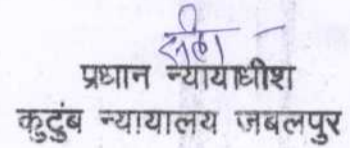 प्रधान न्यायाधीश
कुटुंब न्यायालय जबलपुर